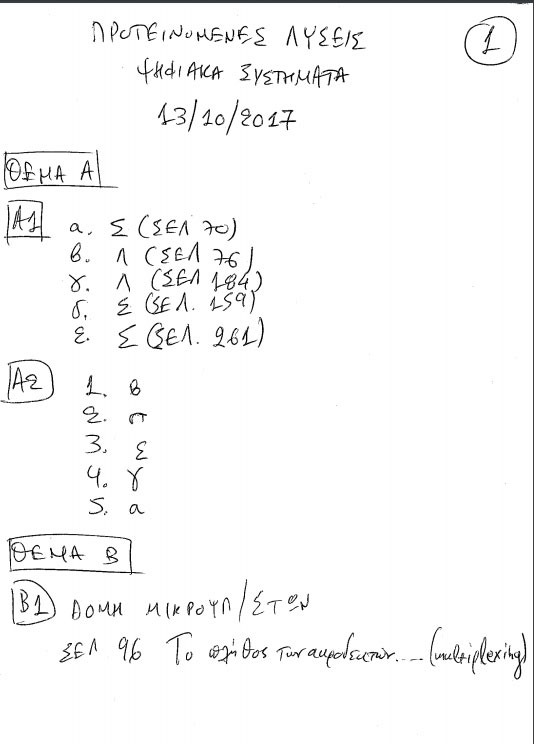 ΠΡΟΤΕΙΝΟΜΕΝΕΣ ΛΥΣΕΙΣ
1
ΨΗΦΙΑΚΑ ΣΥΣΤΗΜΑΤΑ
13/10/2017
ΘΕΜΑ Α
Α1
α. Σ (ΣΕΛ 70)
β. Λ (ΣΕΛ 76)
γ. Λ (ΣΕΛ 184)
δ. Σ (ΣΕΛ. 159)
ε. Σ (ΣΕΛ. 261)
Α2
1. β
2. δ
3. ε
4. γ
5. α
ΘΕΜΑ Β
Β1 ΔΟΜΗ ΜΙΚΡΟΫΠ/ΣΤΩΝ
ΣΕΛ 96 Το πλήθος των ακροδεκτών.... (multiplexing)